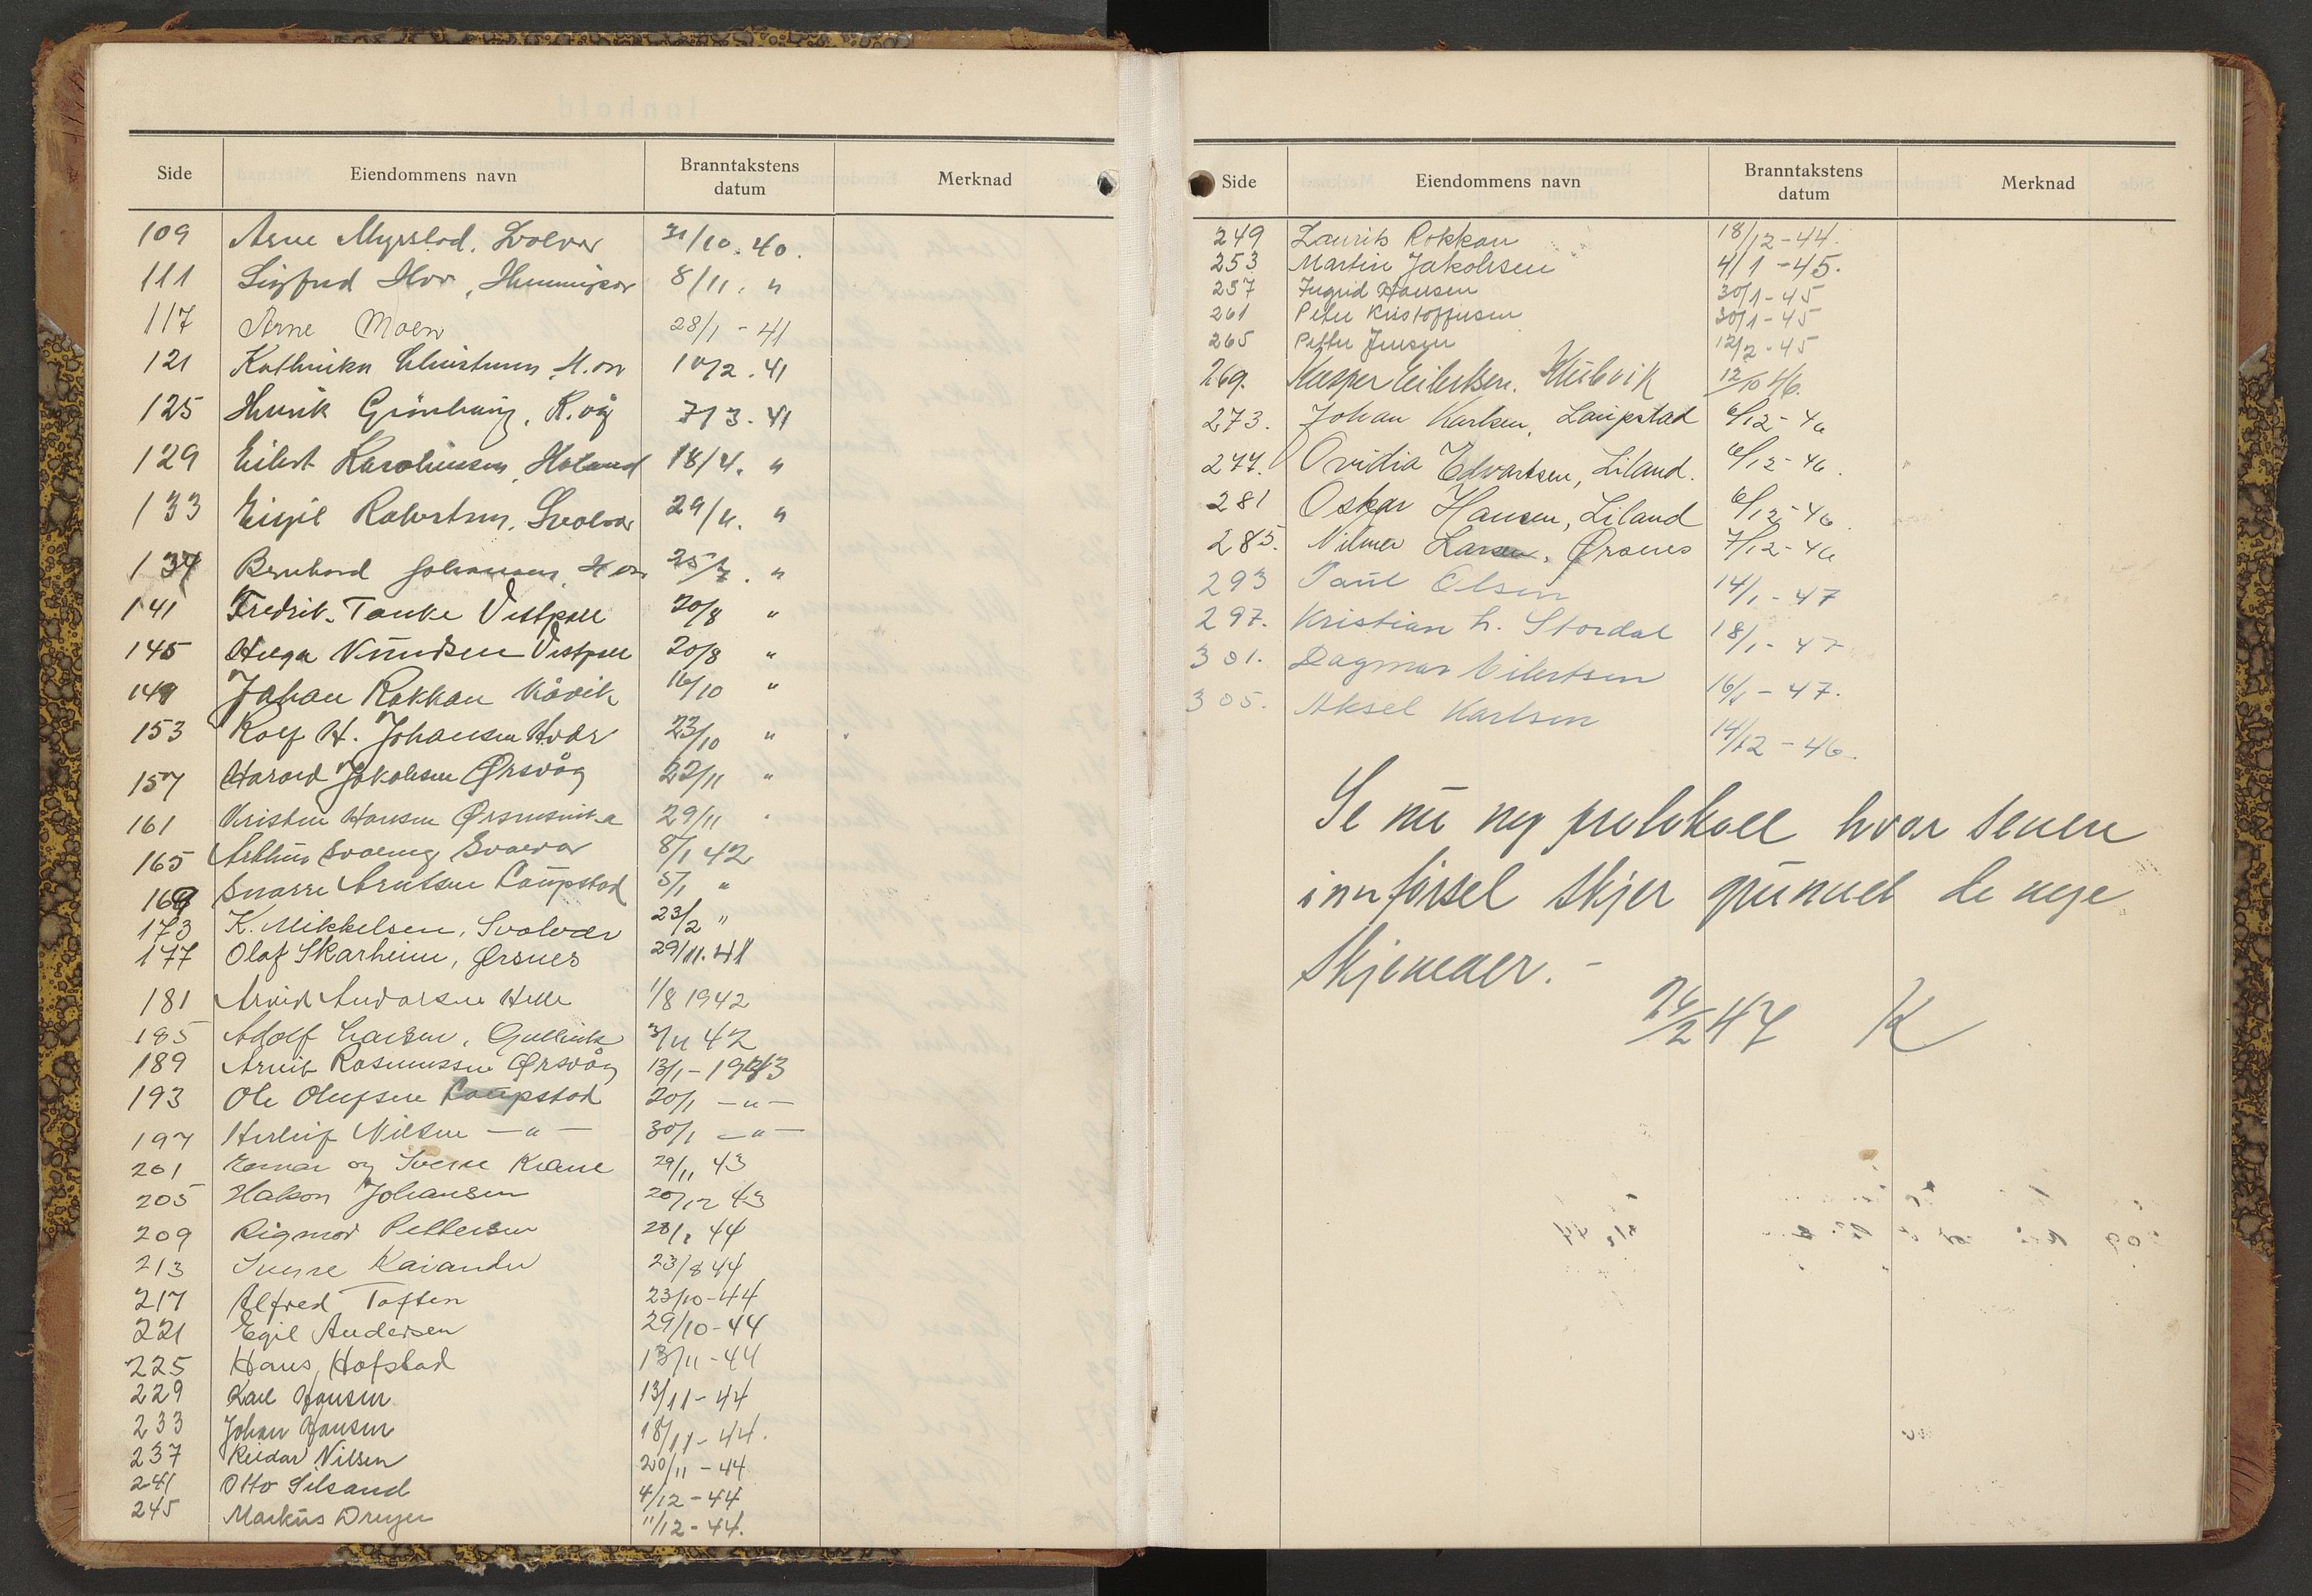 Side Eiendommens navn Branntakstens datum Merknad
109 Arne Myrstad, Svolvær 31/10. 40.
111 Sigfred Hov, Henningsvær 8/11. "
117 Arne Moen 28/1 - 41
121 Kathinka Christensen 10/2. 41
125 Henrik K.våg 7/3. 41
129 Eilert Karoliussen, 18/4. "
133 Eigil Robertsen, Svolvær 29/4. "
137 Bernhard Johansen, 25/7. "
141 Fredrik Tanke Vestpoll 20/8 "
145 Helga Knudsen Vestpoll 20/8 "
149 Johan Rokkan Kåvik 16/10 "
153 Rolf H. Johansen 23/10 "
157 Harald Jakobsen Ørsvåg 22/11 "
161 Kristen Hansen 29/11 "
165 Arthur Svolvær 8/1 42
169 Snorre Arntsen Laupstad 5/1 "
173 K. Mikkelsen, Svolvær 23/2 "
177 Olaf Skarheim, Ørsnes 29/11. 41
181 Arvid Andorsen Helle 1/8 1942
185 Adolf Larsen, 3/11 42
189 Arvid Rasmussen Ørsvåg 13/1 - 1943
193 Ole Olufsen Laupstad 20/1 — " —
197 Herleif Nilsen — " — 30/1 — " —
201 og Sverre Krane 29/11 43
205 Hakon Johansen 20/12 43
209 Rigmor Pettersen 44
213 Sverre Kaiander 23/8 44
217 Alfred Toften 23/10 - 44
221 Egil Andersen 29/10 - 44
225 Hans Hofstad 13/11 - 44
229 Karl Jensen 13/11 - 44
233 Johan Jensen 18/11 - 44.
237 Reidar Nilsen 20/11 - 44
241 Otto Silsand 4/12 - 44
245 Markus Dreyer 11/12 - 44.
Side Eiendommens navn Branntakstens datum Merknad
249 Laurits Rokkan 18/12 - 44.
253 Martin Jakobsen 4/1 - 45.
257 Ingrid Hansen 30/1 - 45
261 Peter Kristoffersen 30/1 - 45
265 Petter Jensen 12/2 - 45
269. Kasper Eilertsen. 12/10 46.
273. Johan Karlsen, Laupstad 6/12 - 46
277. Ovidia Edvartsen, Liland. 6/12 - 46.
281 Oskar Hansen, Liland 6/12 - 46.
285. Larsen. Ørsnes 7/12 - 46
293 Paul Olsen 14/1 - 47
297. Kristian L. Stordal 18/1 - 47
301. Dagmar Eilertsen 16/1 - 47.
305. Aksel Karlsen 14/12 - 46.
Se nu ny protokoll hvor senere
innførsel skjer grunnet de nye
skjemaer. -
26/2 47 K